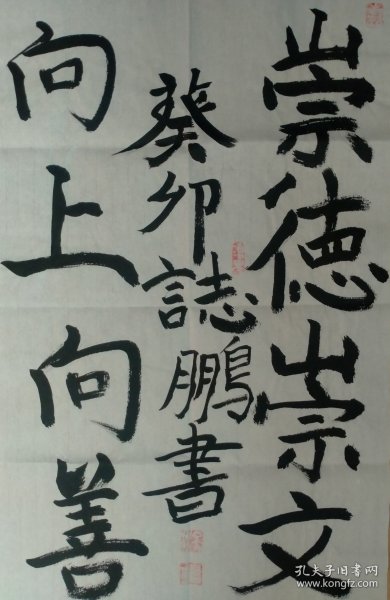 崇德崇文
癸卯誌鵬書
向上向善
孔夫子旧书网
www.kongfz.com